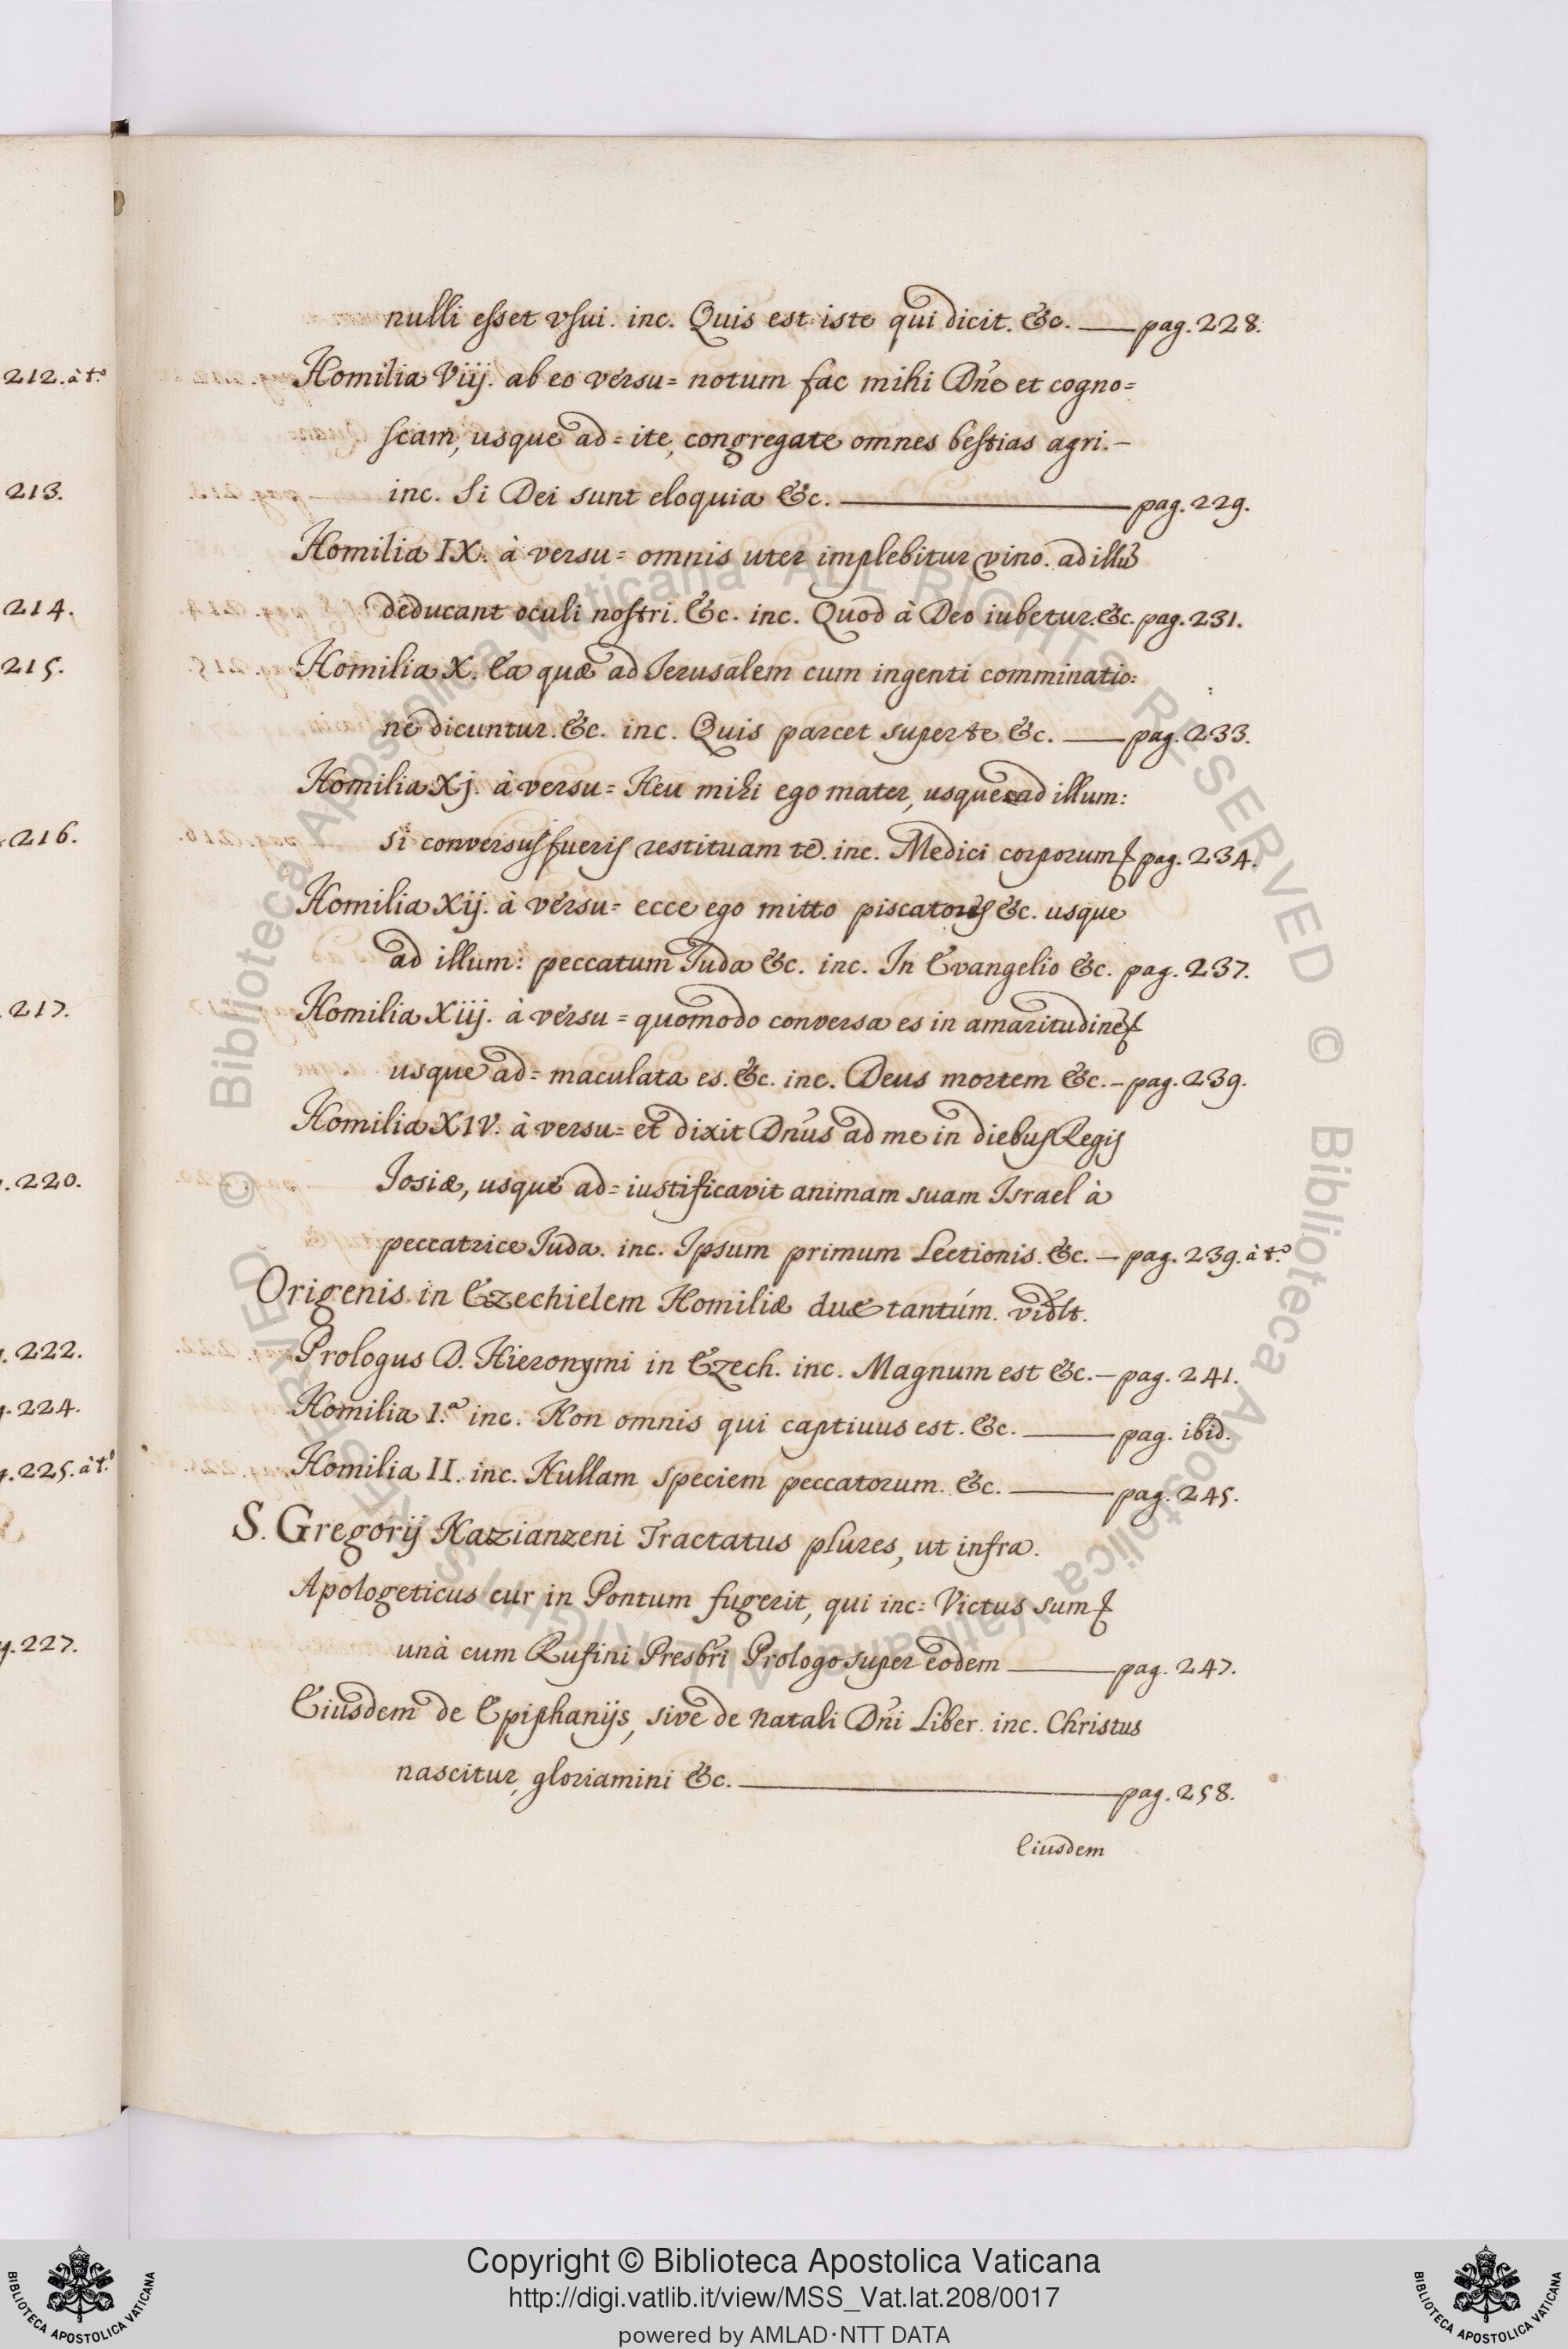 nulli esset vsui. inc. Quis est iste qui dicit. &c. — pag. 228.
Homilia Viij. ab eo versu = notum fac mihi Dn̄e et cogno=
scam, usque ad = ite, congregate omnes bestias agri. –
inc. Si Dei sunt eloquia &c. — pag. 229.
Homilia IX. à versu = omnis uter implebitur vino. ad illū
deducant oculi nostri. &c. inc. Quod à Deo iubetur. &c. pag. 231.
Homilia X. Ea quæ ad Ierusalem cum ingenti comminatio=
ne dicuntur. &c. inc. Quis parcet super te &c. — pag. 233.
Homilia Xj. à versu = Heu mihi ego mater, usque ad illum:
si conversus fueris restituam te. inc. Medici corporum pag. 234.
Homilia Xij. à versu = ecce ego mitto piscatores &c. usque
ad illum: peccatum Iuda &c. inc. In Evangelio &c. pag. 237.
Homilia Xiij. à versu = quomodo conversa es in amaritudinē
usque ad = maculata es. &c. inc. Deus mortem &c. – pag. 239.
Homilia XIV. à versu = et dixit Dn̄us ad me in diebus Regis
Iosiæ, usque ad = iustificavit animam suam Israel à
peccatrice Iuda. inc. Ipsum primum Lectionis. &c. – pag. 239. à t.º
Origenis in Ezechielem Homiliæ duæ tantúm. vidlt.
Prologus D. Hieronymi in Ezech. inc. Magnum est &c. – pag. 241.
Homilia I.ª inc. Non omnis qui captiuus est. &c. — pag. ibid.
Homilia II. inc. Nullam speciem peccatorum. &c. — pag. 245.
S. Gregorij Nazianzeni Tractatus plures, ut infra.
Apologeticus cur in Pontum fugerit, qui inc = Victus sum
unà cum Rufini Presbr̄i Prologo super eodem — pag. 247.
Eiusdem de Epiphanijs, sive de Natali Dn̄i Liber. inc. Christus
nascitur, gloriamini &c. — pag. 258.
Eiusdem
212. à t.º
213.
214.
215.
216.
217.
220.
222.
224.
225. à t.º
227.
© Biblioteca Apostolica Vaticana ALL RIGHTS RESERVED © Biblioteca Apostolica Vaticana ALL RIGHTS RESERVED
Copyright © Biblioteca Apostolica Vaticana
http://digi.vatlib.it/view/MSS_Vat.lat.208/0017
powered by AMLAD·NTT DATA
BIBLIOTECA APOSTOLICA VATICANA
BIBLIOTECA APOSTOLICA VATICANA